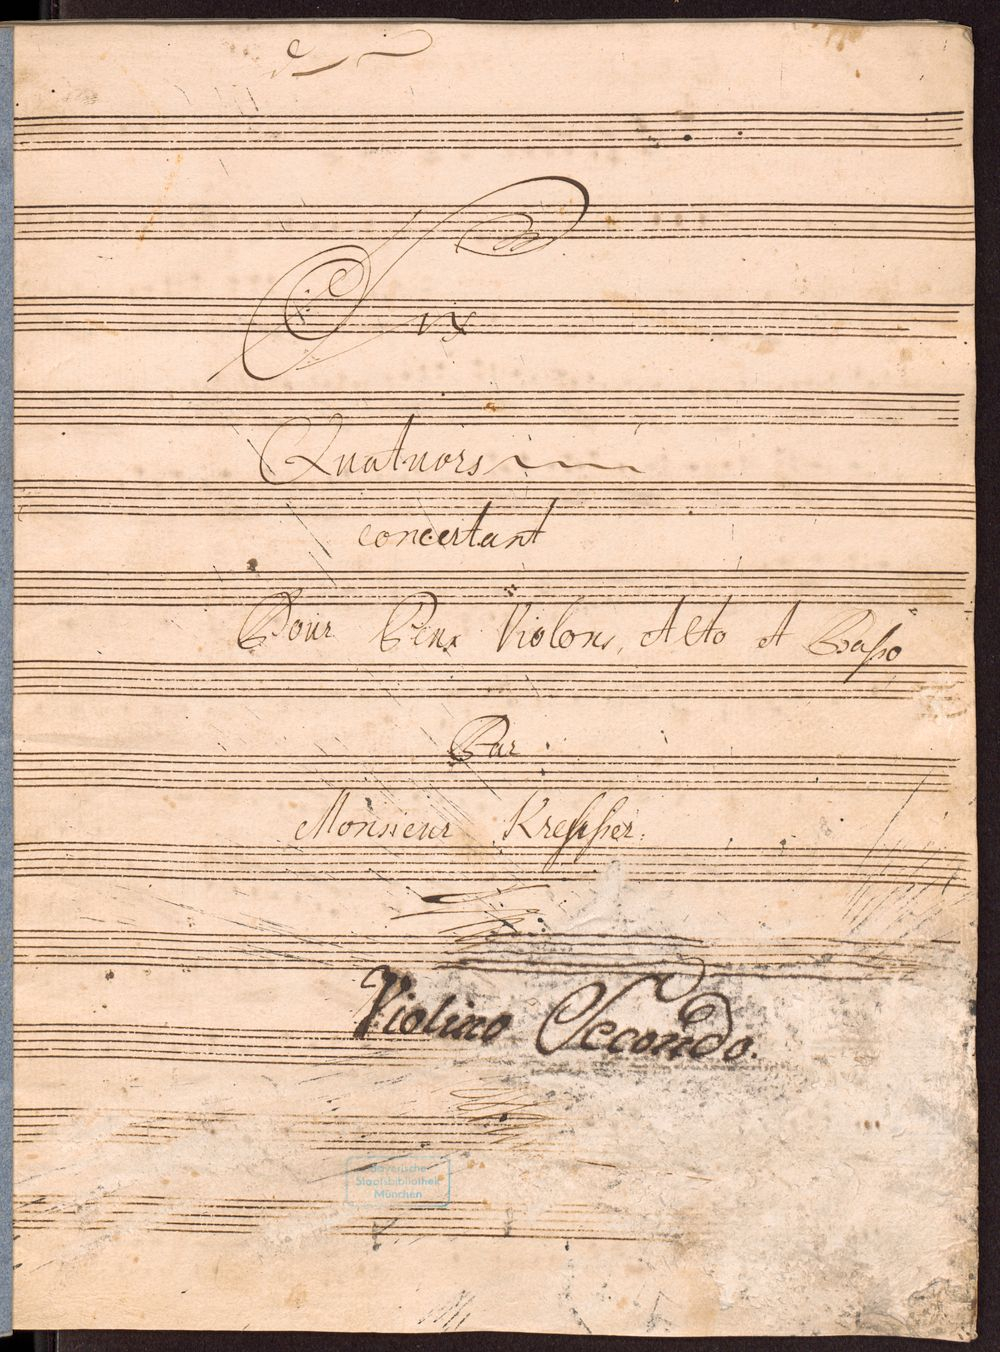 Six
Quatuors
concertant
Pour Deux Violons, Alto et Basso
Par
Monsieur Kreusser.
Violino Secondo.
Bayerische
Staatsbibliothek
München